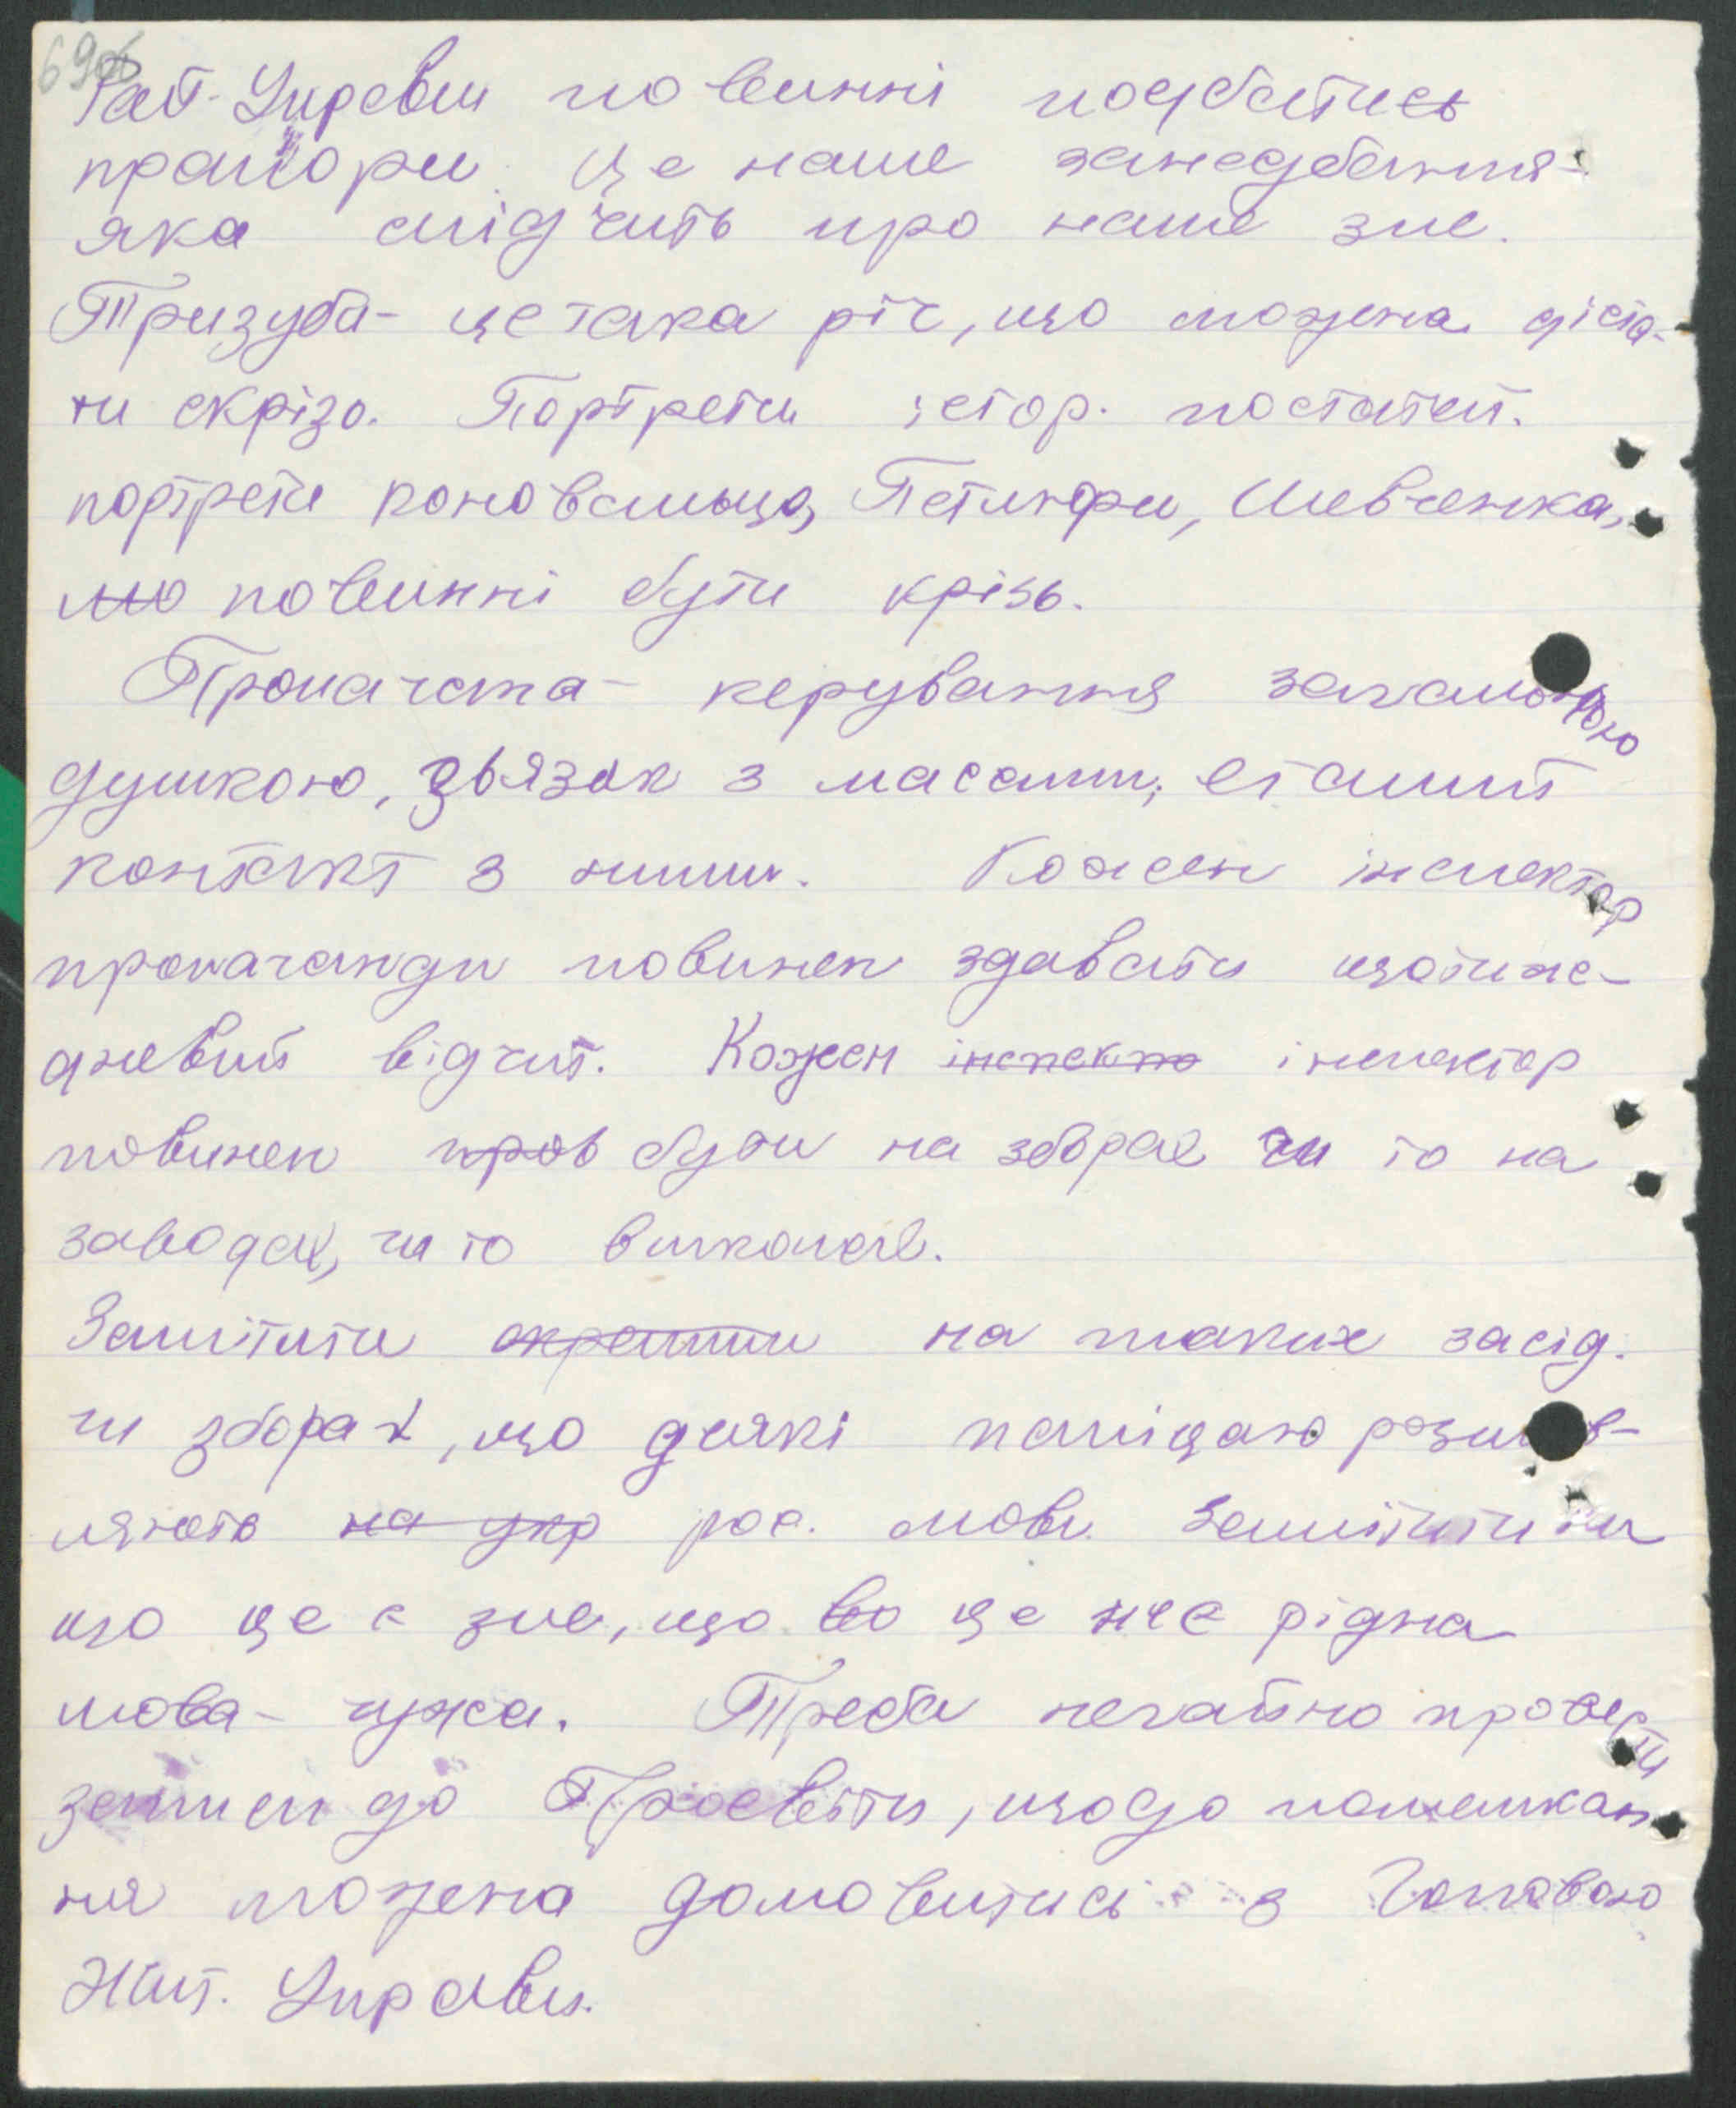 69об
Рай. Управи повинні подбатись
прапори. Це наше занедбання-
яка свідчить про наше зле.
Тризуба - це така річ, що можена діста-
ти скрізь. Портрети істор. постатей.
портрети Коновальця, Петлюри, Шевченка,
що повинні бути крізь.
Пропаганда - керування загальною
думкою, звязок з масами, сталий
контакт з ними. Кожен інспектор
пропаганди повинен здавати щотиж-
дневий відчит. Кожен інспекто інспектор
повинен пров бути на зборах чи то на
заводах, чи то виконав.
Замітити на таких засід.
чи зборах, що деякі розмов-
ляють на укр рос. мови. Замітити їм
що це є зле, що во це не є рідна
мова - чужа. Треба негайно провести
до Просвіти, щодо помешкан
ня можена домовитись з Головою
Жит. Управи.